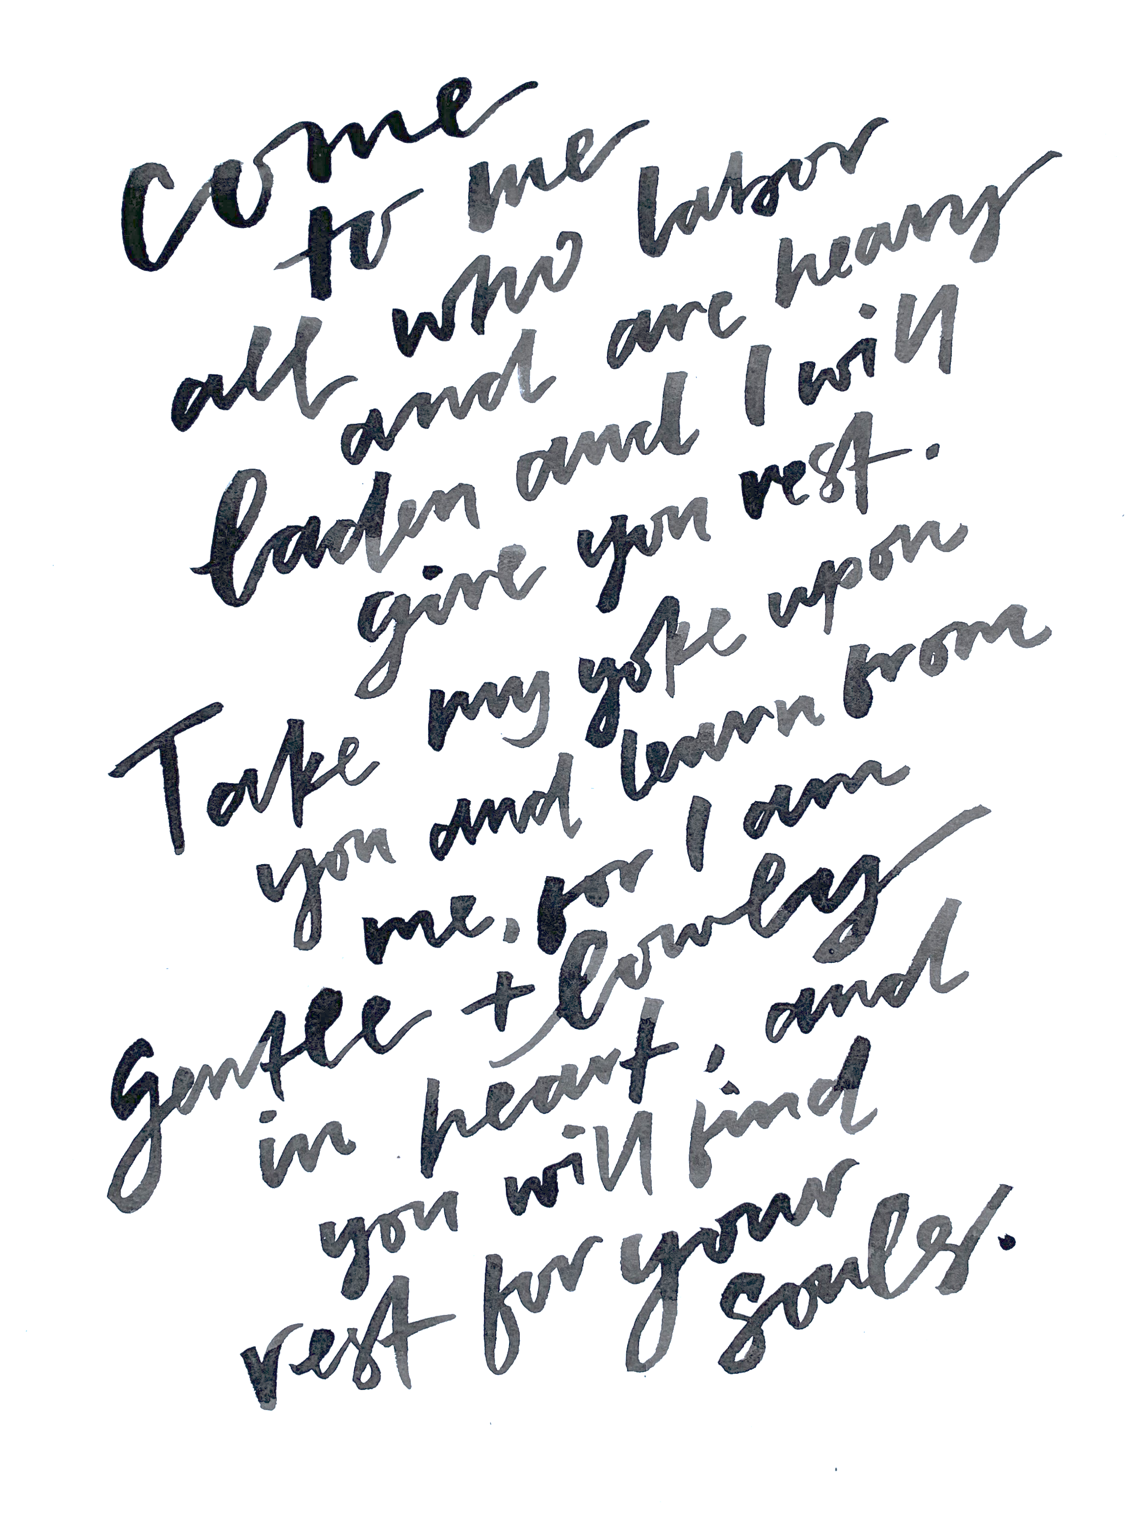 Come
to me
all who labor
and are heavy
laden and I will
give you rest.
Take my yoke upon
you and learn from
me, for I am
gentle + lowly
in heart, and
you will find
rest for your
souls.